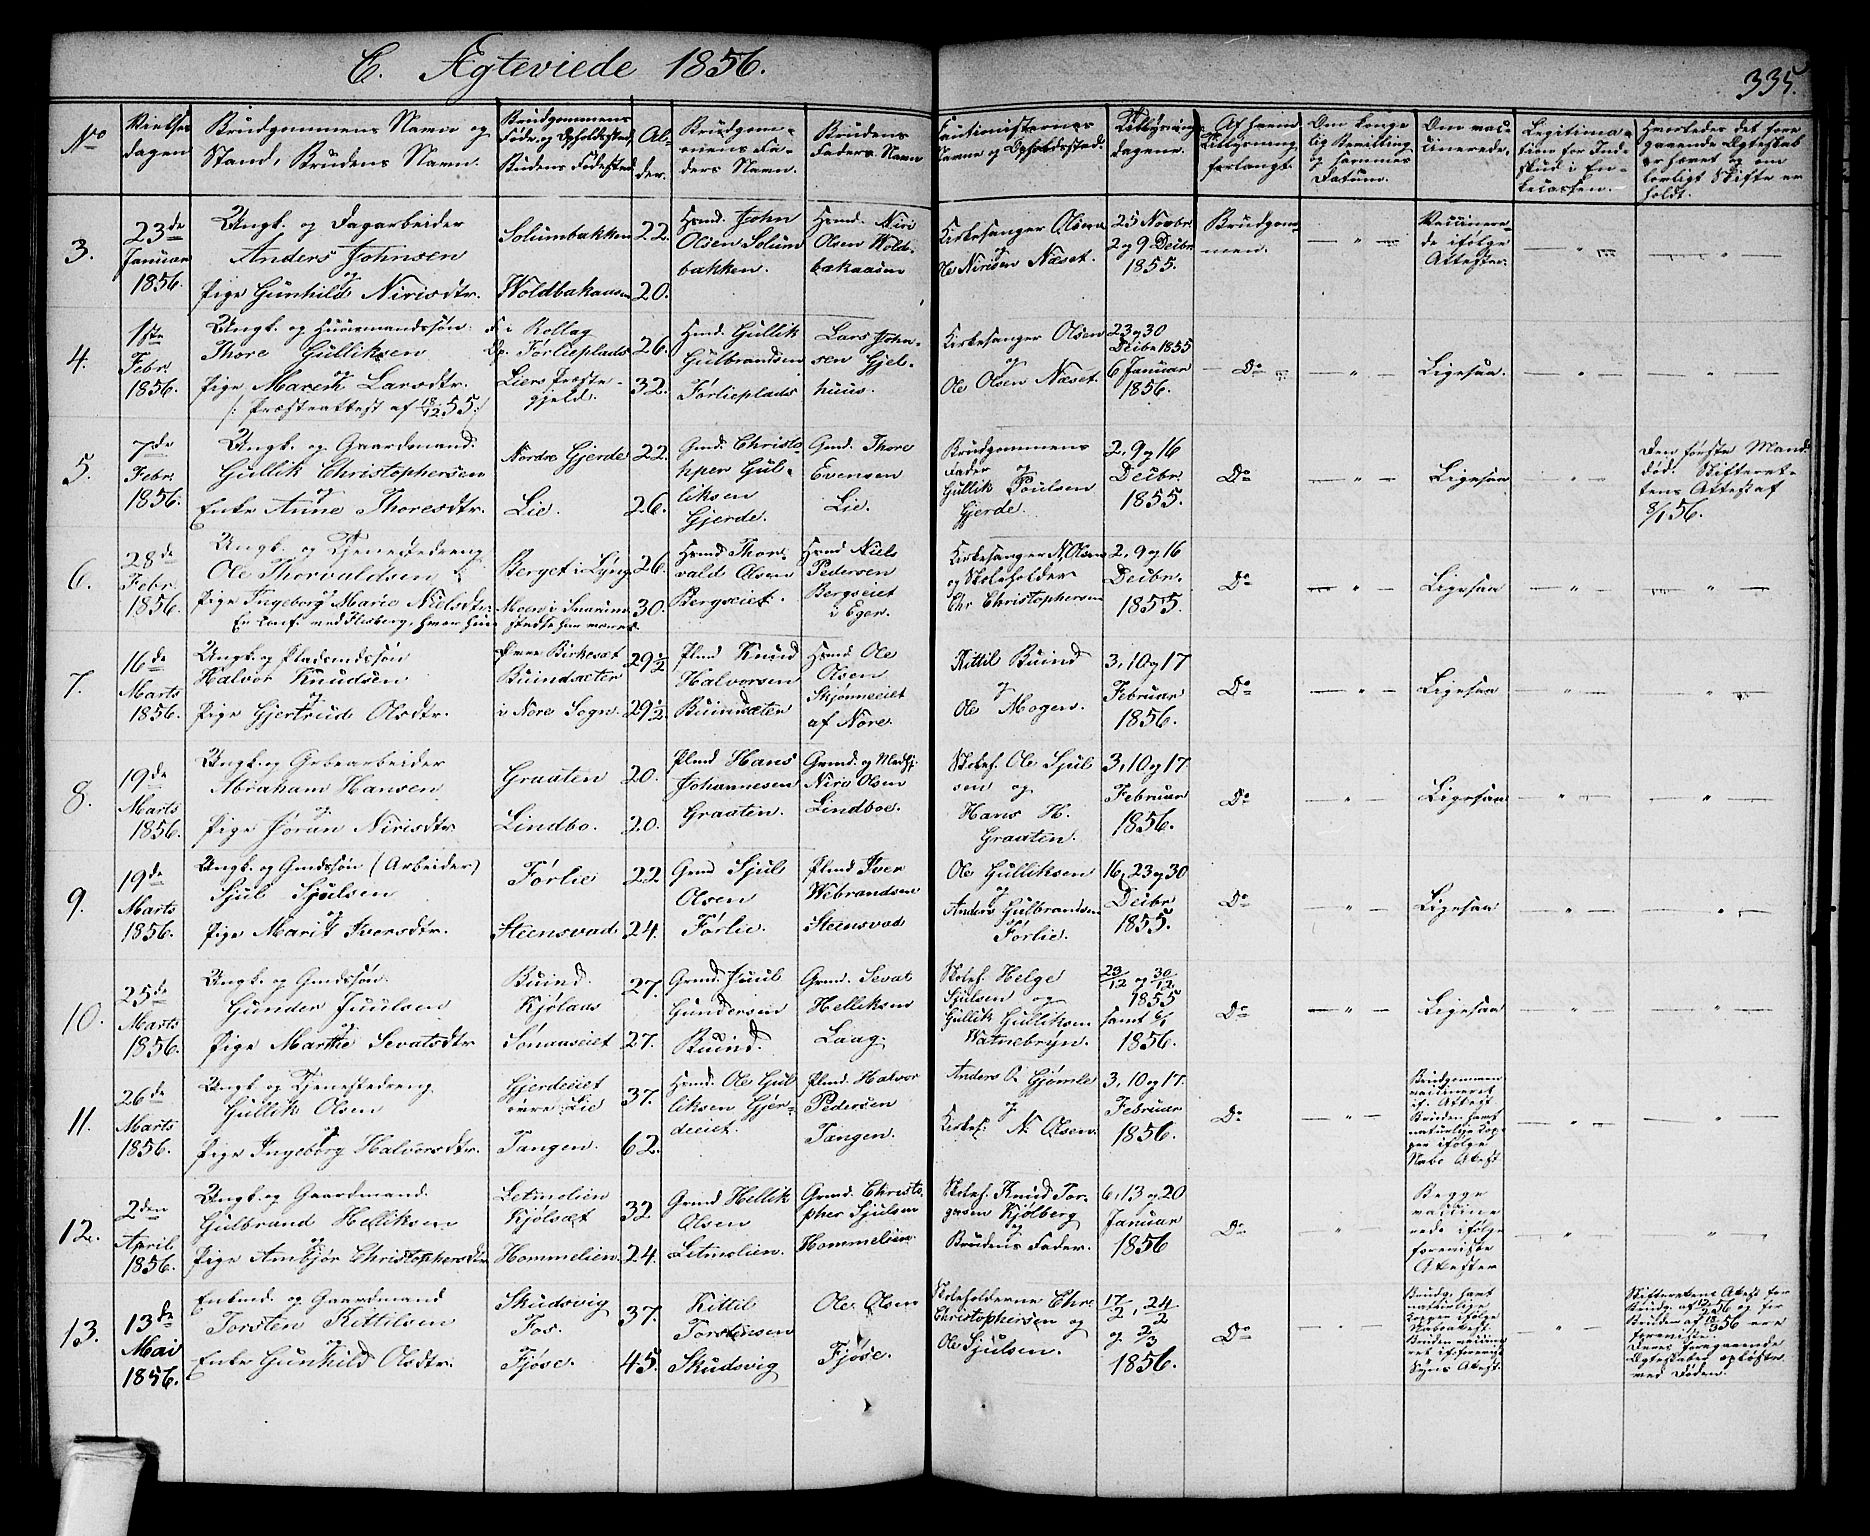 C. Ægteviede 1856.
335.
No
Vielses dagen
Brudgommens Navn og Stand, Brudens Navn.
Brudgommens Føde og Opholdssted, Brudens Fødested
Alder.
Brudgommens Faders Navn.
Brudens Faders Navn
Cautionisternes Navne og Opholdssted.
Tillysningsdagene.
Af hvem Tillysning forlangt.
Om kongelig Bevilling og sammes Datum.
Om vaccinerede.
Legitimation for Indskud i Enkecassen.
Hvorledes det foregaaende Ægteskab er hævet og om lovligt Skifte er holdt.
3.
23de Januar 1856.
Ungk. og Dagarbeider
Anders Johnsen
og
Pige Gunhild Nirisdtr.
Solumbakken
Woldbakaasen
22.
20.
Huusmd. John Olsen Solumbakken.
Huusmd. Niri Olsen Woldbakaasen
Kirkesanger Olsen
og
Ole Nirisen Næset.
25 Novbr 2 og 9 Decbr 1855.
Brudgommen.
Vaccinerede ifølge Attester.
4.
1ste Febr. 1856.
Ungk. og Huusmandssøn
Thore Gulliksen
og
Pige Maren Larsdtr.
/: Præsteattest af 18/12 55:/
F. i Rollag
Op. Førlieplads
Liers Præstegjeld.
26.
32.
Hmd. Gullik Gulbrandsen Førlieplads
Lars Johnsen Gjelhuus
Kirkesanger Olsen
og
Ole Olsen Næset.
23 og 30 Decbr 1855
6 Januar 1856.
Do
Ligesaa.
5.
7de Febr. 1856.
Ungk. og Gaardmand.
Gullik Christophersen
og
Enke Anne Thoresdtr.
Nordre Gjerde
Lie.
22.
26.
Gmd. Christopher Gulliksen Gjerde.
Gmd. Thore Evensen Lie.
Brudgommens Fader og
Gullik Poulsen Gjerde.
2, 9 og 16 Decbr. 1855.
Do
Ligesaa
Den første Mand død. Skifterettens Attest af 8/1 56.
6.
28de Febr. 1856.
Ungk. og Tjenestedreng
Ole Thorvaldsen
og
Pige Ingeborg Marie Nielsdtr.
Berget i Lyng
Moen i Snarum
26.
30.
Hmd Thorvald Olsen Bergseiet.
Hmd Niels Pedersen Bergseiet i Eger.
Kirkesanger N. Olsen
og Skoleholder
Chr Christophersen
2, 9 og 16 Decbr. 1855.
Do
Ligesaa
7.
16de Marts 1856.
Ungk. og Pladsmdssøn
Halvor Knudsen
og
Pige Gjertrud Olsdtr.
Birkesæt
Buindsæter
i Nore Sogn.
29½
29½.
Plmd Knud Halvorsen Buindsæter
Hmd Ole Olsen Skjønneeiet af Nore.
Kittil Buind
og
Ole Mogen.
3, 10 og 17 Februar 1856.
Do
Ligesaa
8.
19de Marts 1856.
Ungk. og Grbearbeider
Abraham Hansen
og
Pige Jøran Nirisdtr.
Graaten
Lindbo.
20.
20.
Plmd Hans Johannesen Graaten.
Niri Olsen Lindboe.
Skolef. Ole Sjulsen og
Hans H. Graaten.
3, 10 og 17 Februar 1856.
Do
Ligesaa
9.
19de Marts 1856.
Ungk. og Gmdssøn (Arbeider)
Sjul Sjulsen
og
Pige Marit Iversdtr.
Førlie
Steensvad
22
24.
Gmd Sjul Olsen Førlie.
Plmd Iver Webrandsen Steensvad
Ole Gulliksen
og
Anders Gulbrandsen Førlie.
16, 23 og 30 Decbr 1855.
Do
Ligesaa
10.
25de Marts 1856.
Ungk. og Gmdssøn.
Gunder Juulsen
og
Pige Marthe Sevatsdtr
Buind.
Kjølaas
Sønaaseiet
27.
27.
Gmd. Juul Gundersen Buind.
Gmd. Sevat Helliksen Laag.
Skolef. Helge Sjulsen og
Gullik Gulliksen Watnebryn.
23/12 og 30/12 1855 samt 6/1 1856.
Do
Ligesaa
11.
26de Marts 1856.
Ungk. og Tjenestedreng.
Gullik Olsen
og
Pige Ingeborg Halvorsdtr.
Gjerdeeiet
Lie
Tangen.
37.
62.
Hmd. Ole Gulliksen Gjerdeeiet.
Plmd. Halvor Pedersen Tangen.
Anders O. Gjømle
og
Kirkes: N. Olsen.
3, 10 og 17. Februar 1856.
Do
Brudgommen vaccineret if. Attest Bruden havt naturlige Kopper ifølge Attest
12.
2den April 1856.
Ungk. og Gaardmand.
Gulbrand Helliksen
og
Pige Ambjør Christophersdtr
Letmelien
Kjølset
Hommelien.
32
24.
Gmd Hellik Olsen Letmelien.
Gmd. Christopher Sjulsen Hommelien
Skolef. Knud Torgersen Kjølberg
og
Brudens Fader.
6, 13 og 20 Januar 1856
Do
Begge vaccinerede ifølge foreviste Attester
13.
13de Mai 1856.
Enkmd. og Gaardmand
Torsten Kittilsen
og
Enke Gunhild Olsdtr.
Skudsvig
Fos.
Fjøse.
37.
45.
Kittil Torstensen Skudsvig
Ole Olsen Fjøse.
Skoleholderne Chr. Christophersen og
Ole Sjulsen.
17/2, 24/2 og 2/3 1856.
Do
Brudg. havt naturlige Kopper ifølge Bruden vaccineret if. foreviist Attest.
Skifterettens Attest for Brudg. af 12/2 56 og for Bruden af 12/3 56 ere foreviste. Deres foregaaende Ægteskaber opløste ved Døden.